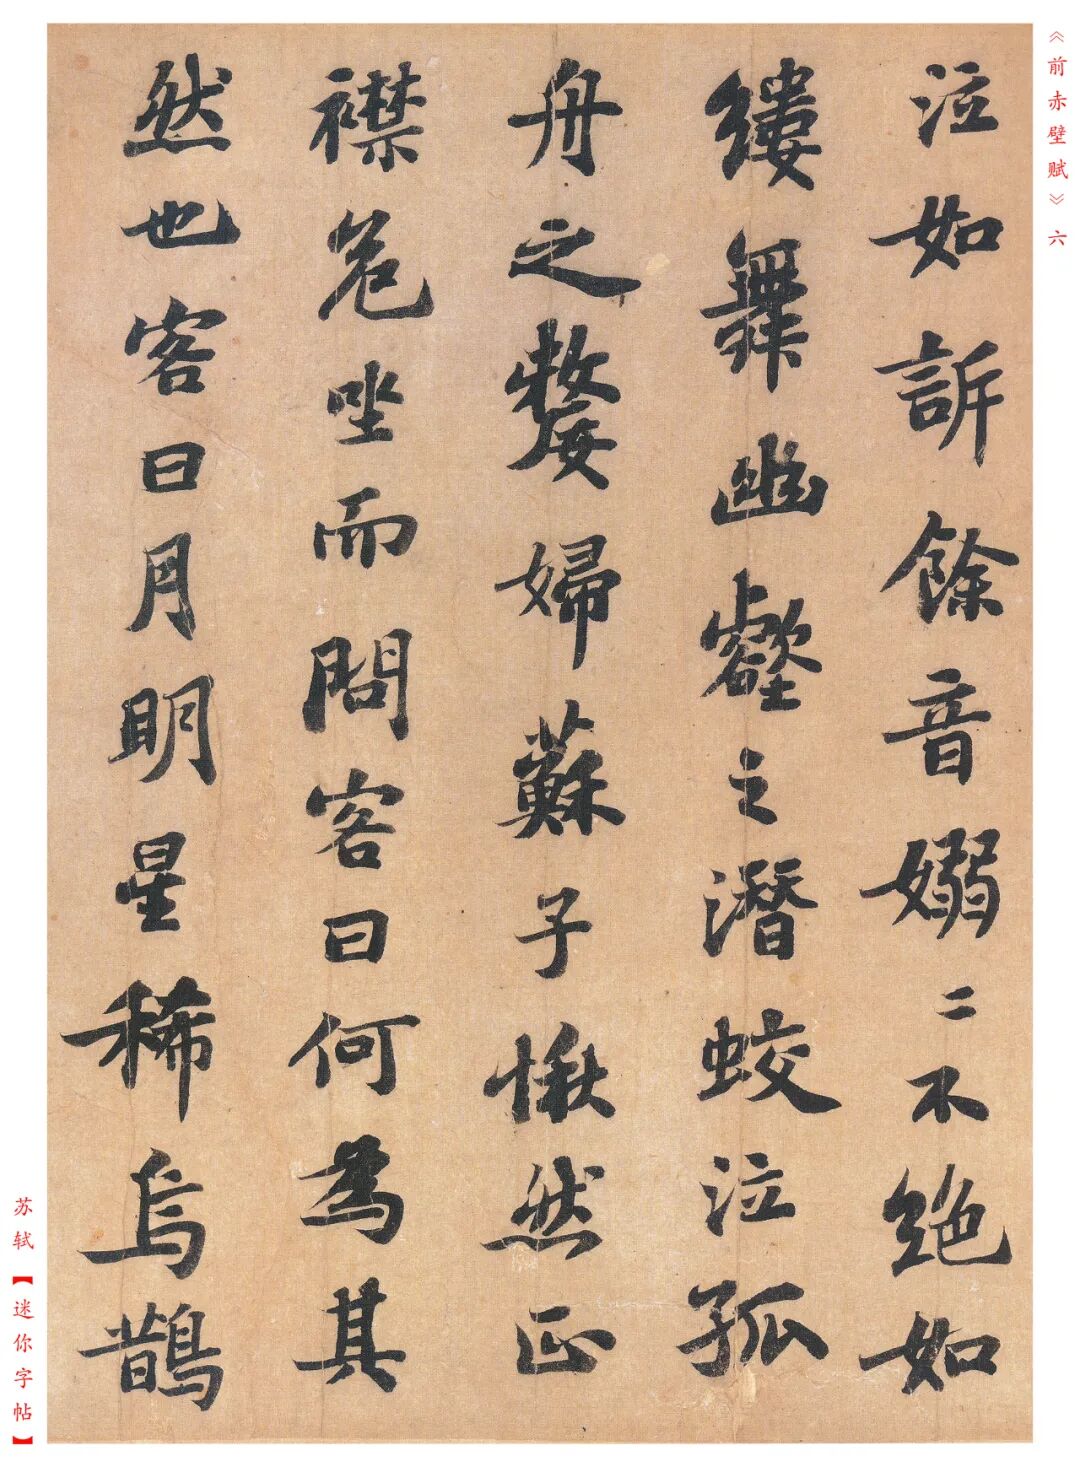 《前赤壁赋》六
泣如訴餘音嫋二不絶如
縷舞幽壑之潛蛟泣孤
舟之嫠婦蘇子愀然正
襟危坐而問客曰何為其
然也客曰月明星稀烏鵲
苏轼【迷你字帖】